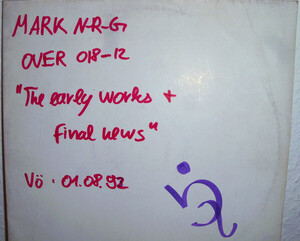 MARK N-R-G
OVER 018-12
"The early works +
final news"
Vö · 01.08.92